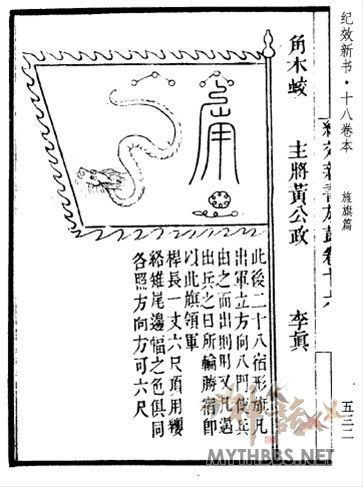 纪效新书·十八卷本 旌旗篇
五三二
角木蛟 主將黃公政 李眞
此後二十八宿形旗凡
出軍立方向八門伏兵
由之而出則用又凡遇
出兵之日所輪勝宿即
以此旗領軍
桿長一丈六尺頂用纓
絡雉尾邊幅之色俱同
各照方向方可六尺
MYTHBBS.NET